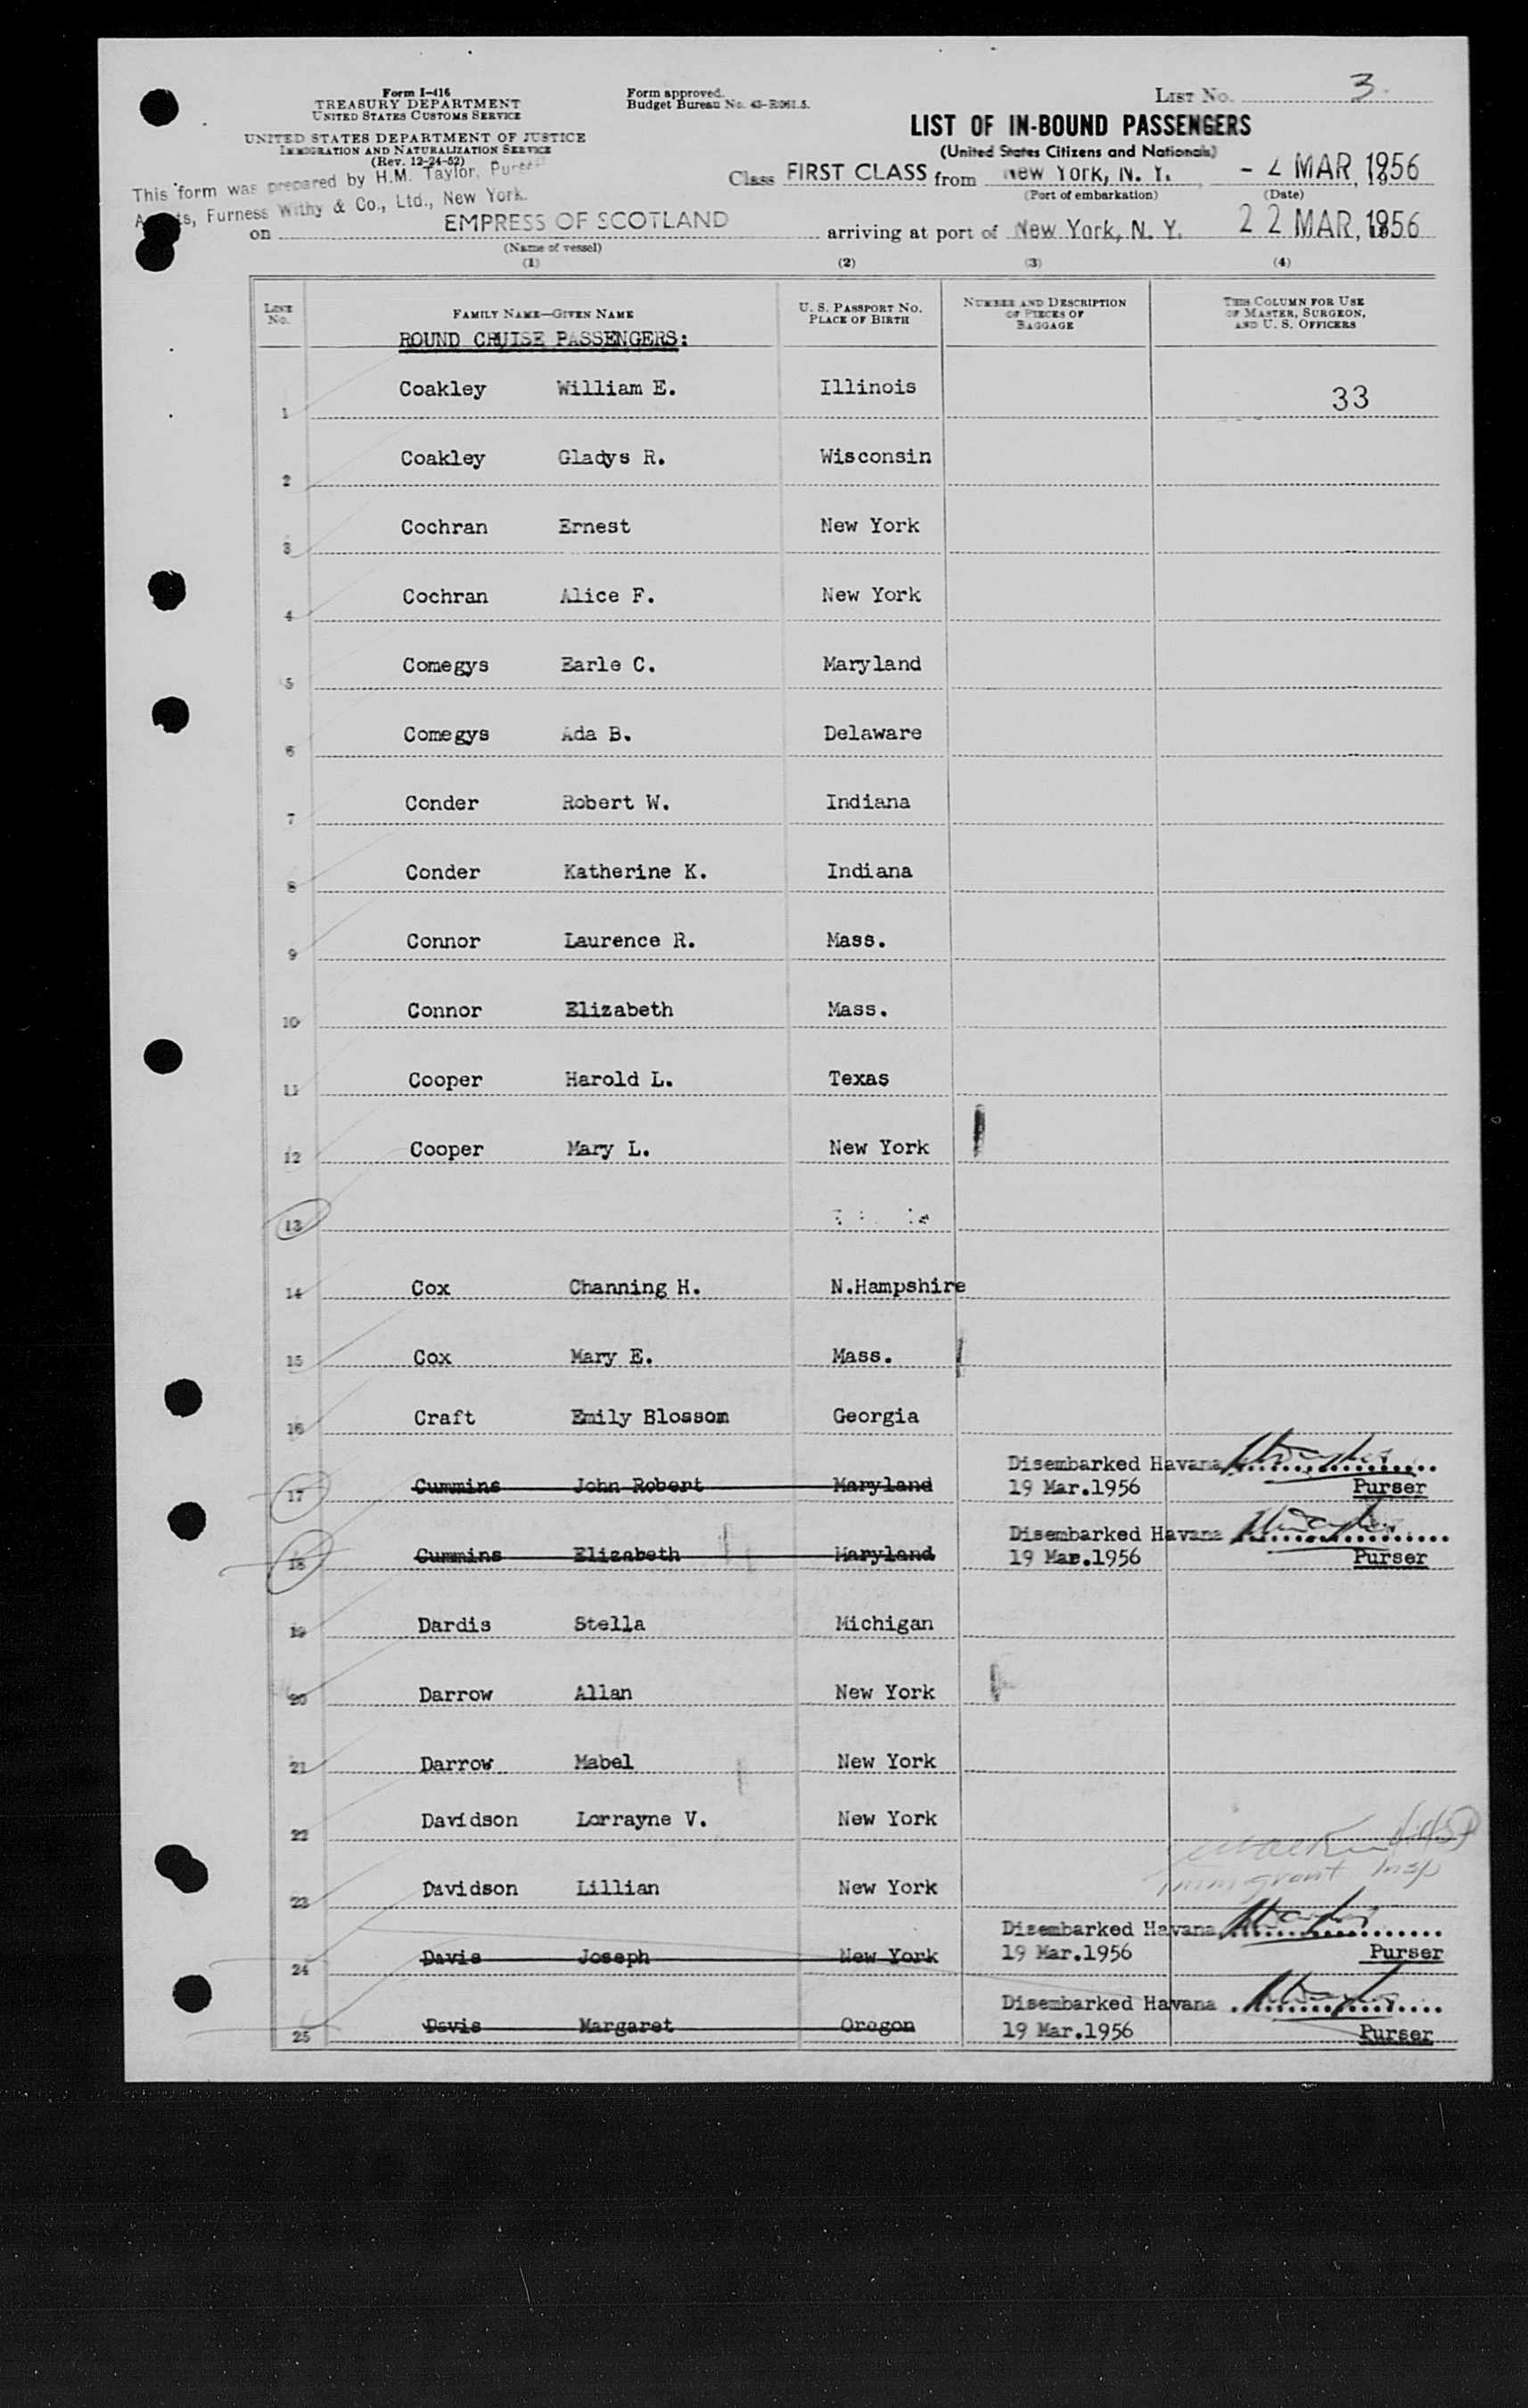 Form I-416
TREASURY DEPARTMENT
UNITED STATES CUSTOMS SERVICE
UNITED STATES DEPARTMENT OF JUSTICE
IMMIGRATION AND NATURALIZATION SERVICE
(Rev. 12-24-52)
This form was prepared by H.M. Taylor, Purser
Furness Withy & Co., Ltd., New York.
Form approved.
Budget Bureau No. 43-R061.5.
LIST No. 3
LIST OF IN-BOUND PASSENGERS
(United States Citizens and Nationals)
Class FIRST CLASS from New York, N. Y., - 2 MAR, 1956
(Port of embarkation) (Date)
on EMPRESS OF SCOTLAND arriving at port of New York, N. Y. 22 MAR, 1956
(Name of vessel)
(1) (2) (3) (4)
LINE No. FAMILY NAME—GIVEN NAME U. S. PASSPORT NO. PLACE OF BIRTH NUMBER AND DESCRIPTION OF PIECES OF BAGGAGE THIS COLUMN FOR USE OF MASTER, SURGEON, AND U. S. OFFICERS
ROUND CRUISE PASSENGERS:
1 Coakley William E. Illinois 33
2 Coakley Gladys R. Wisconsin
3 Cochran Ernest New York
4 Cochran Alice F. New York
5 Comegys Earle C. Maryland
6 Comegys Ada B. Delaware
7 Conder Robert W. Indiana
8 Conder Katherine K. Indiana
9 Connor Laurence R. Mass.
10 Connor Elizabeth Mass.
11 Cooper Harold L. Texas
12 Cooper Mary L. New York
13
14 Cox Channing H. N.Hampshire
15 Cox Mary E. Mass.
16 Craft Emily Blossom Georgia
17 Cummins John Robert Maryland Disembarked Havana
19 Mar.1956 Purser
18 Cummins Elizabeth Maryland Disembarked Havana
19 Mar.1956 Purser
19 Dardis Stella Michigan
20 Darrow Allan New York
21 Darrow Mabel New York
22 Davidson Lorrayne V. New York
23 Davidson Lillian New York
Immigrant Insp
24 Davis Joseph New York Disembarked Havana
19 Mar.1956 Purser
25 Davis Margaret Oregon Disembarked Havana
19 Mar.1956 Purser